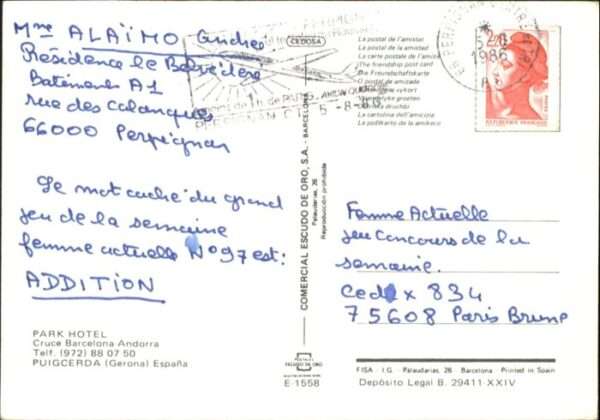 Mme ALAÏMO Andrée
Résidence le Belvédère
Batiments A1
rue des Calanques
66000 Perpignan
Le mot caché du grand
jeu de la semaine
femme actuelle N° 97 est:
ADDITION
PARK HOTEL
Cruce Barcelona Andorra
Telf. (972) 88 07 50
PUIGCERDA (Gerona) España
CEDOSA
COMERCIAL ESCUDO DE ORO, S.A. - BARCELONA
Palaudarias, 26
Reproducción prohibida
ESCUDO DE ORO
E-1558
La postal de l'amistat
La postal de la amistad
La carte postale de l'amitié
The friendship post card
Die Freundschaftskarte
O postal da amizade
La cartolina dell'amicizia
PERPIGNAN
5-8-86
1986
2,20
REPUBLIQUE FRANÇAISE
Femme Actuelle
jeu concours de la
semaine.
Cedex 834
75608 Paris Brune
FISA - I.G. - Palaudarias, 26 - Barcelona Printed in Spain
Depósito Legal B. 29411-XXIV